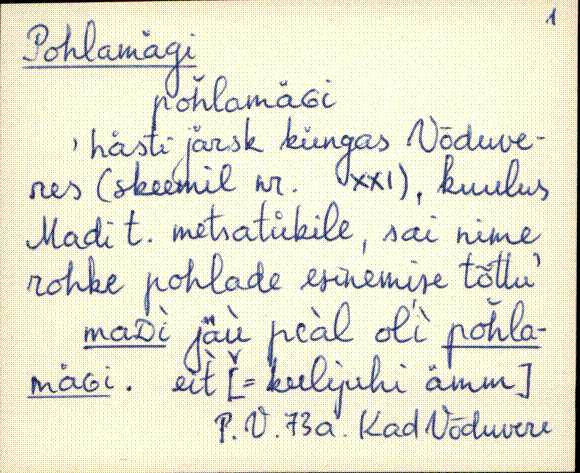 1
Pohlamägi
pŏhlamäGi
'hästi järsk küngas Võduve-
res (skeemil nr. XXI), kuulus
Madi t. metsatükile, sai nime
rohke pohlade esinemise tõttu'
maDì jäù peàl olì pŏhla-
mäGi. eìt [= kulijuhi ämm]
P. V. 73 a. Kad Võduvere